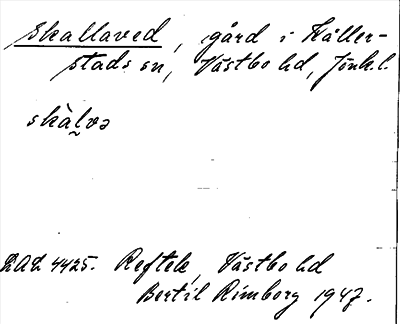 Skallaved, gård i Kåller-
stads sn, Västbo hd, Jönk.l.
skàl̬və
DAL 4425. Reftele, Västbo hd
Bertil Rimborg 1947.